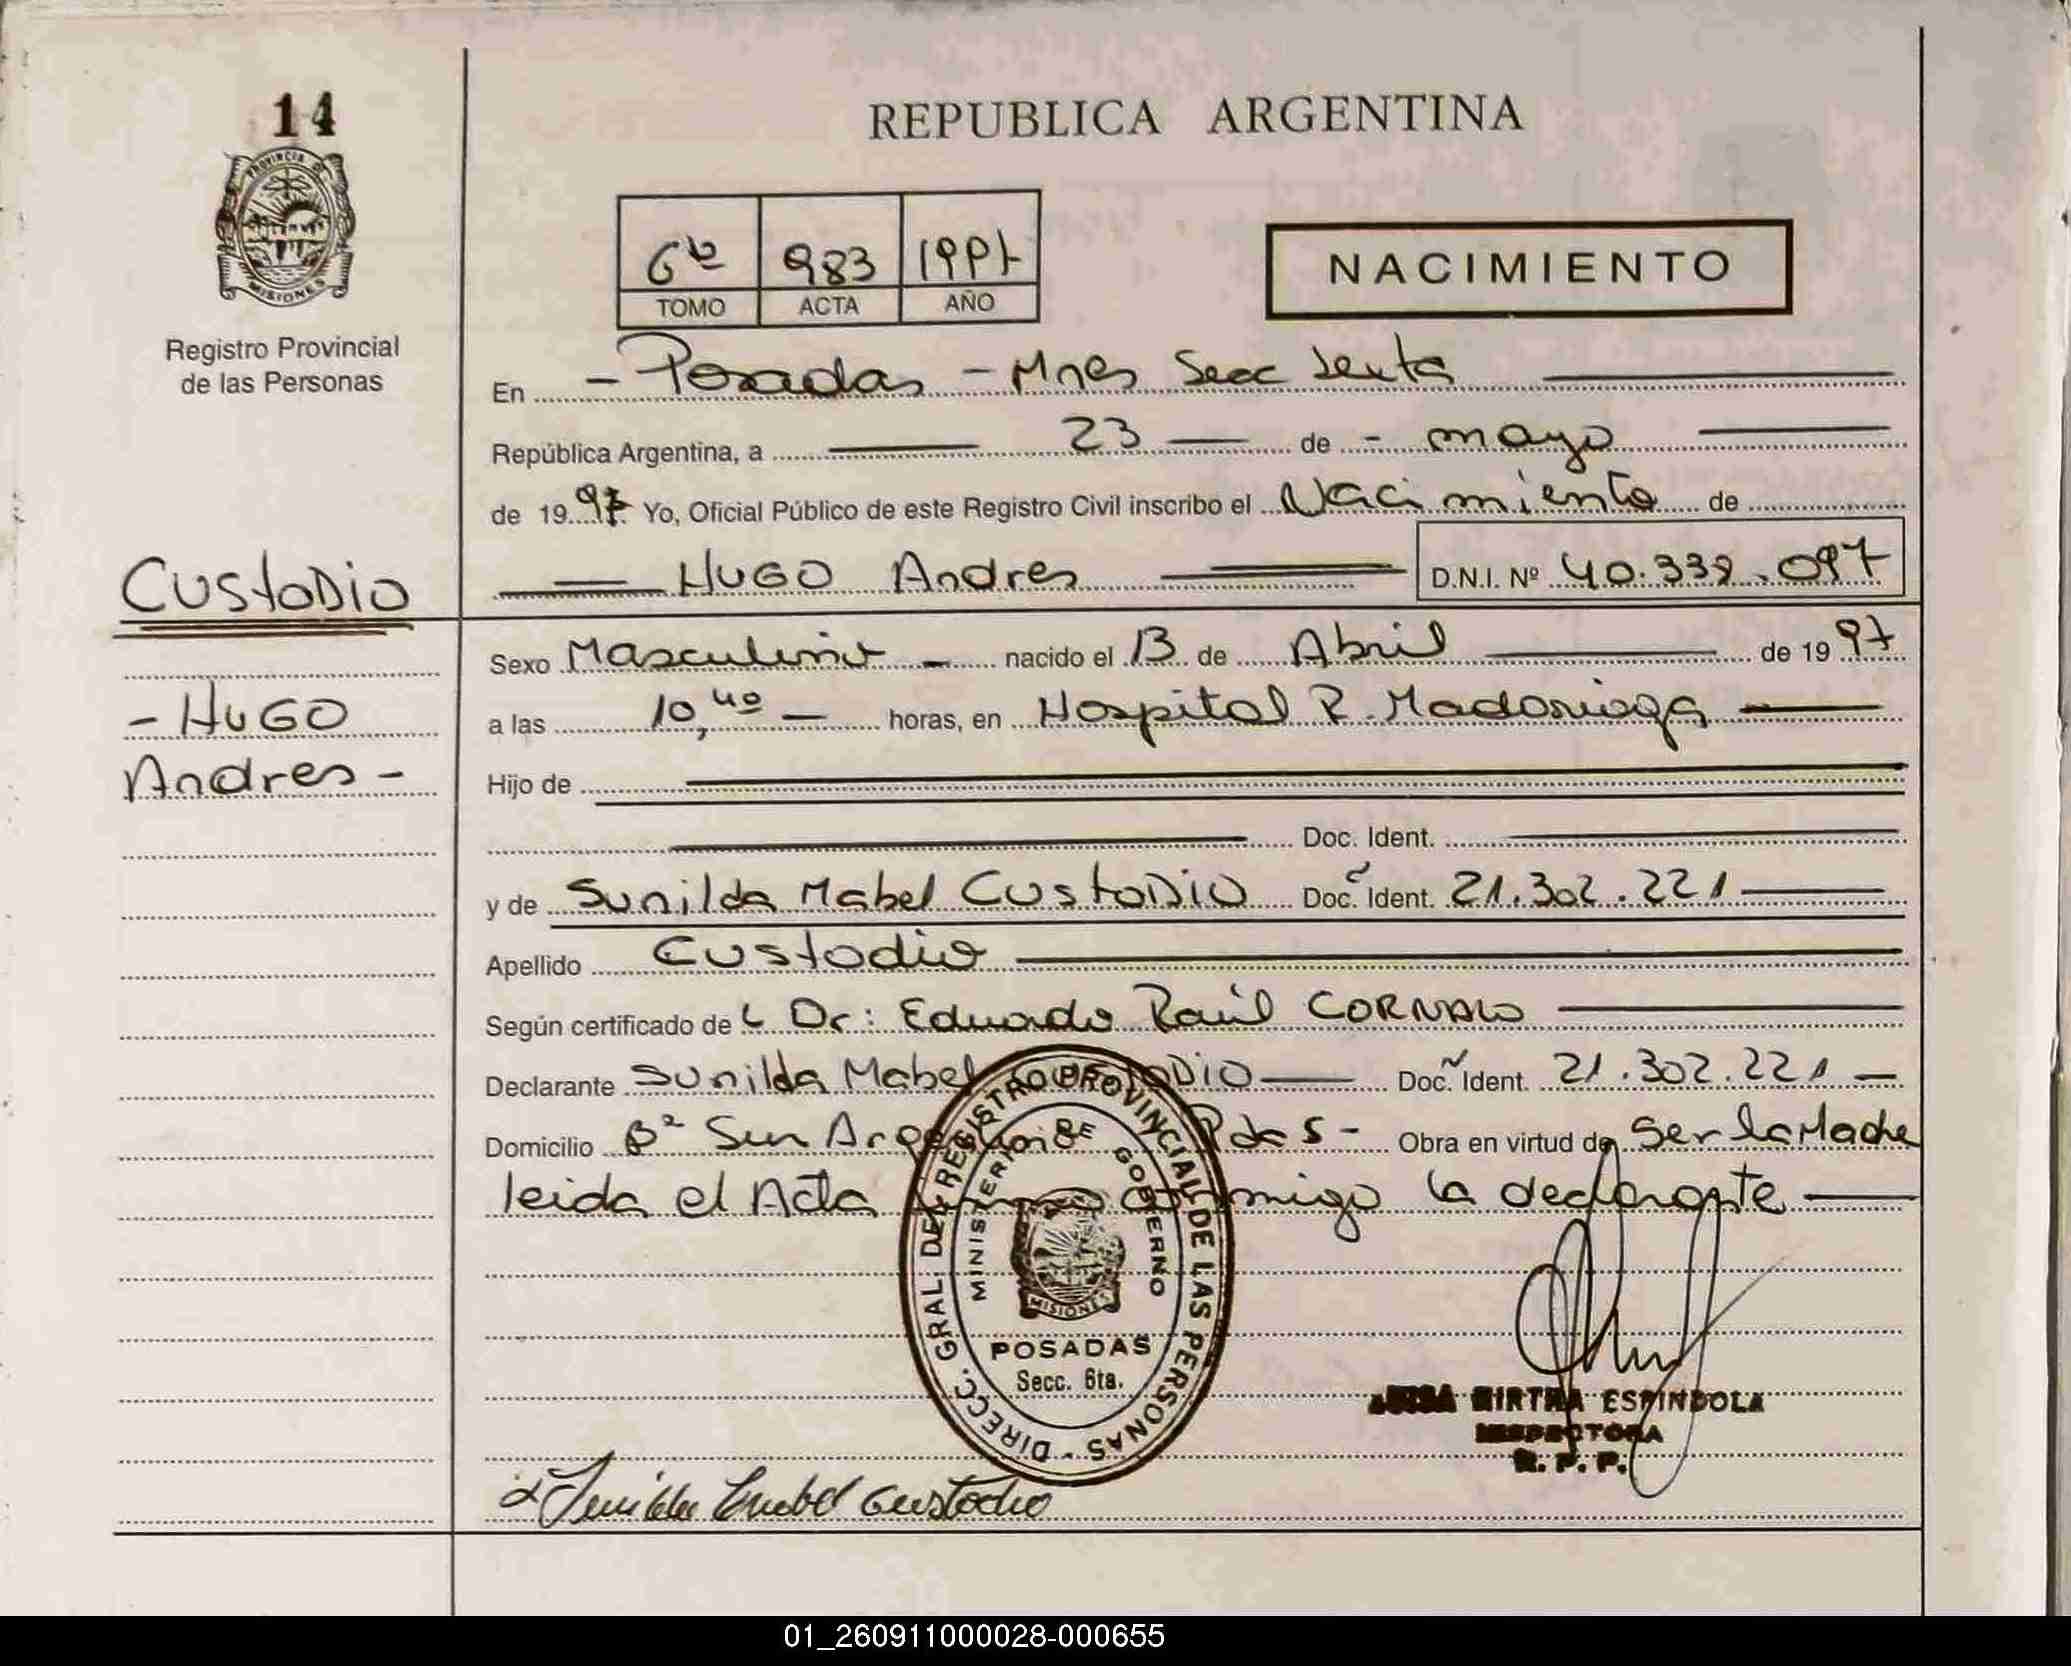 14
PROVINCIA DE
MISIONES
Registro Provincial
de las Personas
REPUBLICA ARGENTINA
6to 983 1997
TOMO ACTA AÑO
NACIMIENTO
En - Posadas - Mnes Secc Sexta
República Argentina, a 23 de - mayo
de 1997 Yo, Oficial Público de este Registro Civil inscribo el Nacimiento de
HUGO Andres D.N.I. Nº 40.339.097
CUSTODIO
- HUGO
Andres -
Sexo Masculino - nacido el 13 de Abril de 1997
a las 10,40 - horas, en Hospital R. Madariaga
Hijo de
Doc. Ident.
y de Sunilda Mabel CUSTODIO Doc. Ident. 21.302.221
Apellido Custodio
Según certificado de Dr: Eduardo Raúl
Declarante Sunilda Mabel CUSTODIO Doc. Ident. 21.302.221 -
Domicilio Bº Sur Pdas - Obra en virtud de Ser la Madre
leida el Acta firma conmigo la declarante
DIRECC. GRAL. DEL REGISTRO PROVINCIAL DE LAS PERSONAS -
MINISTERIO DE GOBERNO
MISIONES
POSADAS
Secc. 6ta.
MIRTHA ESPINDOLA
INSPECTORA
R. P. P.
Sunilda Mabel Custodio
01_260911000028-000655